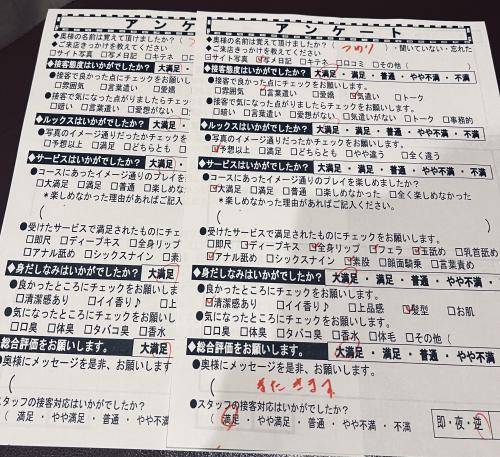 アンケ
アンケート
●奥様の名前は覚えて頂けましたか?(
●ご来店きっかけを教えてください
□サイト写真 □写メ日記 □キテネ
◆接客態度はいかがでしたか? 大満足
●接客で良かった点にチェックをお願いし
□雰囲気 □言葉遣い □愛嬌
●接客で気になった点がありましたらチェッ
□暗い □言葉遣い □愛想がない
◆ルックスはいかがでしたか? 大満足
●写真のイメージ通りだったかチェックを
□予想以上 □満足 □どちらとも
◆サービスはいかがでしたか? 大満足
●コースにあったイメージ通りのプレイを
□大満足 □満足 □普通 □楽しめな
*楽しめなかった理由があればご記入
(
●受けたサービスで満足されたものにチェ
□即尺 □ディープキス □全身リップ
□アナル舐め □シックスナイン □素
◆身だしなみはいかがでしたか? 大満足
●良かったところにチェックをお願いしま
□清潔感あり □イイ香り♪ □上
●気になったところにチェックをお願いし
□口臭 □体臭 □タバコ臭 □香水
総合評価をお願いします。 大満足
●奥様にメッセージを是非、お願いします
(
スタッフの接客対応はいかがでしたか?
( 満足 ・ やや満足 ・ 普通 ・ やや不
●奥様の名前は覚えて頂けましたか?( つかり )・聞いていない・忘れた
●ご来店きっかけを教えてください
□サイト写真 □写メ日記 □キテネ □口コミ □その他(
◆接客態度はいかがでしたか? 大満足 ・ 満足 ・ 普通 ・ やや不満 ・ 不満
●接客で良かった点にチェックをお願いします。
□雰囲気 □言葉遣い □愛嬌 □気遣い □トーク
●接客で気になった点がありましたらチェックをお願いします。
□暗い □言葉遣い □愛想がない □気遣いがない □トーク □事務的
◆ルックスはいかがでしたか? 大満足 ・ 満足 ・ 普通 ・ やや不満 ・ 不満
●写真のイメージ通りだったかチェックをお願いします。
□予想以上 □満足 □どちらとも □やや違う □全く違う
◆サービスはいかがでしたか? 大満足 ・ 満足 ・ 普通 ・ やや不満 ・ 不満
●コースにあったイメージ通りのプレイを楽しめましたか?
□大満足 □満足 □普通 □楽しめなかった □全く楽しめなかった
*楽しめなかった理由があればご記入ください。
(
●受けたサービスで満足されたものにチェックをお願いします。
□即尺 □ディープキス □全身リップ □フェラ □玉舐め □乳首舐め
□アナル舐め □シックスナイン □素股 □顔面騎乗 □言葉責め
◆身だしなみはいかがでしたか? 大満足 ・ 満足 ・ 普通 ・ やや不満 ・ 不満
●良かったところにチェックをお願いします。
□清潔感あり □イイ香り♪ □上品感 □髪型 □お肌
●気になったところにチェックをお願いします。
□口臭 □体臭 □タバコ臭 □香水 □体毛 □その他(
総合評価をお願いします。 大満足 ・ 満足 ・ 普通 ・ やや不満 ・ 不満
●奥様にメッセージを是非、お願いします。
( またきます。
●スタッフの接客対応はいかがでしたか?
( 満足 ・ やや満足 ・ 普通 ・ やや不満 ・ 不満
即・夜・逆